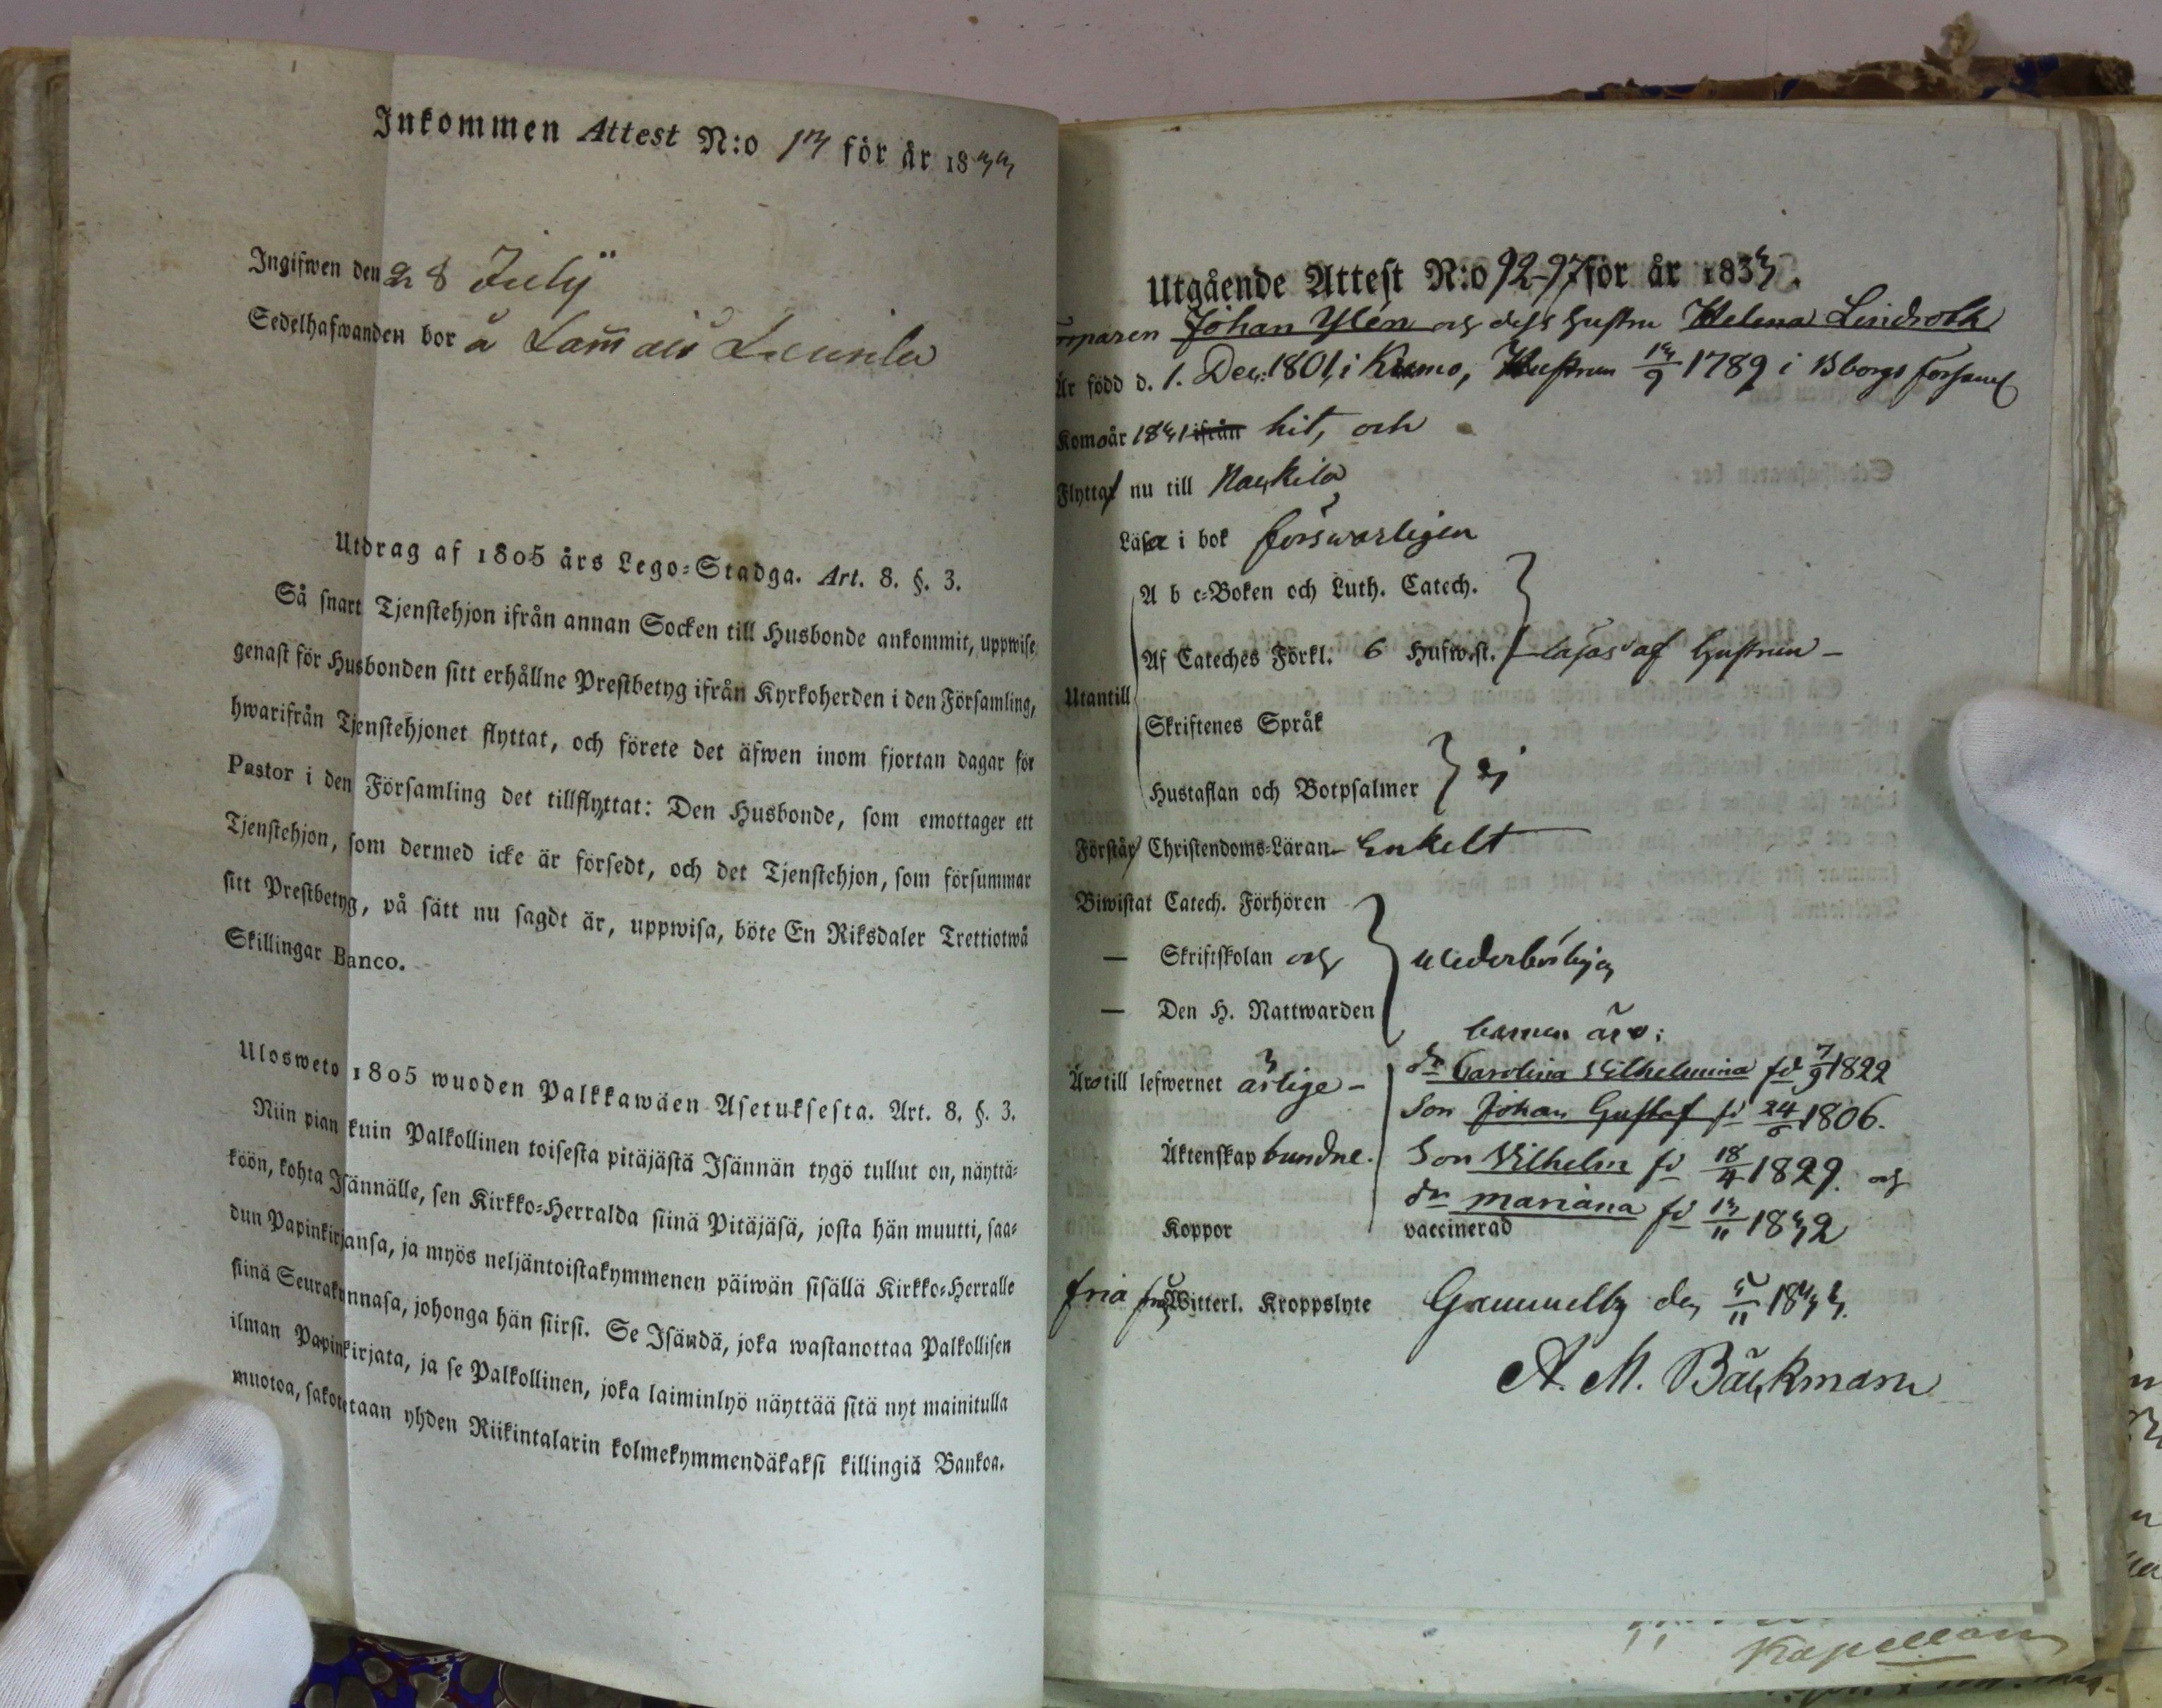 Inkommen Attest N:o 13 för år 1833
Ingifwen den 28 Julÿ
Sedelhafwanden bor å
Utdrag af 1805 års Lego-Stadga. Art. 8. §. 3.
Så snart Tjenstehjon ifrån annan Socken till Husbonde ankommit, uppwise
genast för Husbonden sitt erhållne Prestbetyg ifrån Kyrkoherden i den Församling,
hwarifrån Tjenstehjonet flyttat, och förete det äfwen inom fjortan dagar för
Pastor i den Församling det tillflyttat: Den Husbonde, som emottager ett
Tjenstehjon, som dermed icke är försedt, och det Tjenstehjon, som försummar
sitt Prestbetyg, på sätt nu sagdt är, uppwisa, böte En Riksdaler Trettiotwå
Skillingar Banco.
Ulosweto 1805 wuoden Palkkawäen Asetuksesta. Art. 8. §. 3.
Niin pian kuin Palkollinen toisesta pitäjästä Isännän tygö tullut on, näyttä-
köön, kohta Isännälle, sen Kirkko-Herralda siinä Pitäjäsä, josta hän muutti, saa-
dun Papinkirjansa, ja myös neljäntoistakymmenen päiwän sisällä Kirkko-Herralle
siinä Seurakunnasa, johonga hän siirsi. Se Isändä, joka wastanottaa Palkollisen
ilman Papinkirjata, ja se Palkollinen, joka laiminlyö näyttää sitä nyt mainitulla
muotoa, sakotetaan yhden Riikintalarin kolmekymmendäkaksi killingiä Bankoa.
Utgående Attest N:o 92-97 för år 1833.
Johan Ylén och dess hustru Helena Lindroth
Är född d. 1. Dec: 1801, i Kumo, Hustrun 13/9 1789 i Bborgs
Komo år 1831 ifrån hit, och
Flyttar nu till Nackila
Läsa i bok förswarligen
A b c-Boken och Luth. Catech.
Af Cateches Förkl. 6 Hufwst. läsas af hustrun -
Utantill
Skriftenes Språk
Hustaflan och Botpsalmer } ej
Förstår Christendoms-Läran - Enkelt
Biwistat Catech. Förhören
— Skriftskolan och wederbörligen
— Den H. Nattwarden
barnen äro:
Äro till lefwernet ärlige - dr Carolina Wilhelmina fd 7/9 1822
Son Johan Gustaf fd 24/6 1806.
Äktenskap bundne. Son Wilhelm fd 18/4 1829. och
dr Mariana fd 13/11 1832
Koppor vaccinerad
fria från Witterl. Kroppslyte Gammelby den 5/11 1833.
A. M. Bäckman
Kapellan